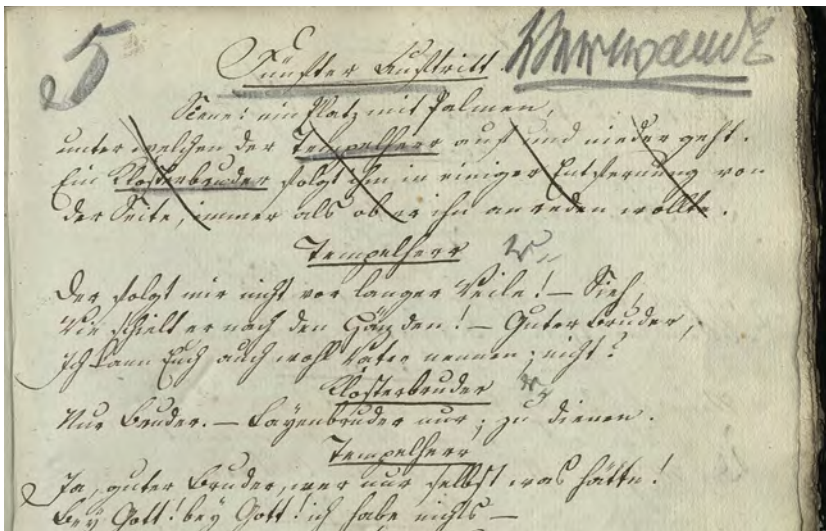 5
Fünfter Auftritt.
Verwandl
Scene: ein Platz mit Palmen,
unter welchen der Tempelherr auf und nieder geht.
Ein Klosterbruder folgt ihm in einiger Entfernung von
der Seite, immer als ob er ihn anreden wollte.
Tempelherr
Der folgt mir nicht vor langer Weile! — Sieh,
Wie schielt er nach den Händen! — Guter Bruder,
Ich kann Euch auch wohl Vater nennen; nicht?
Klosterbruder
Nur Bruder. — Layenbruder nur; zu dienen.
Tempelherr
Ja, guter Bruder, wer nur selbst was hätte!
Bey Gott! bey Gott! ich habe nichts —